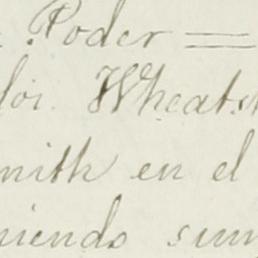 Poder =
loi. Wheatst
mith en el
niendo sum